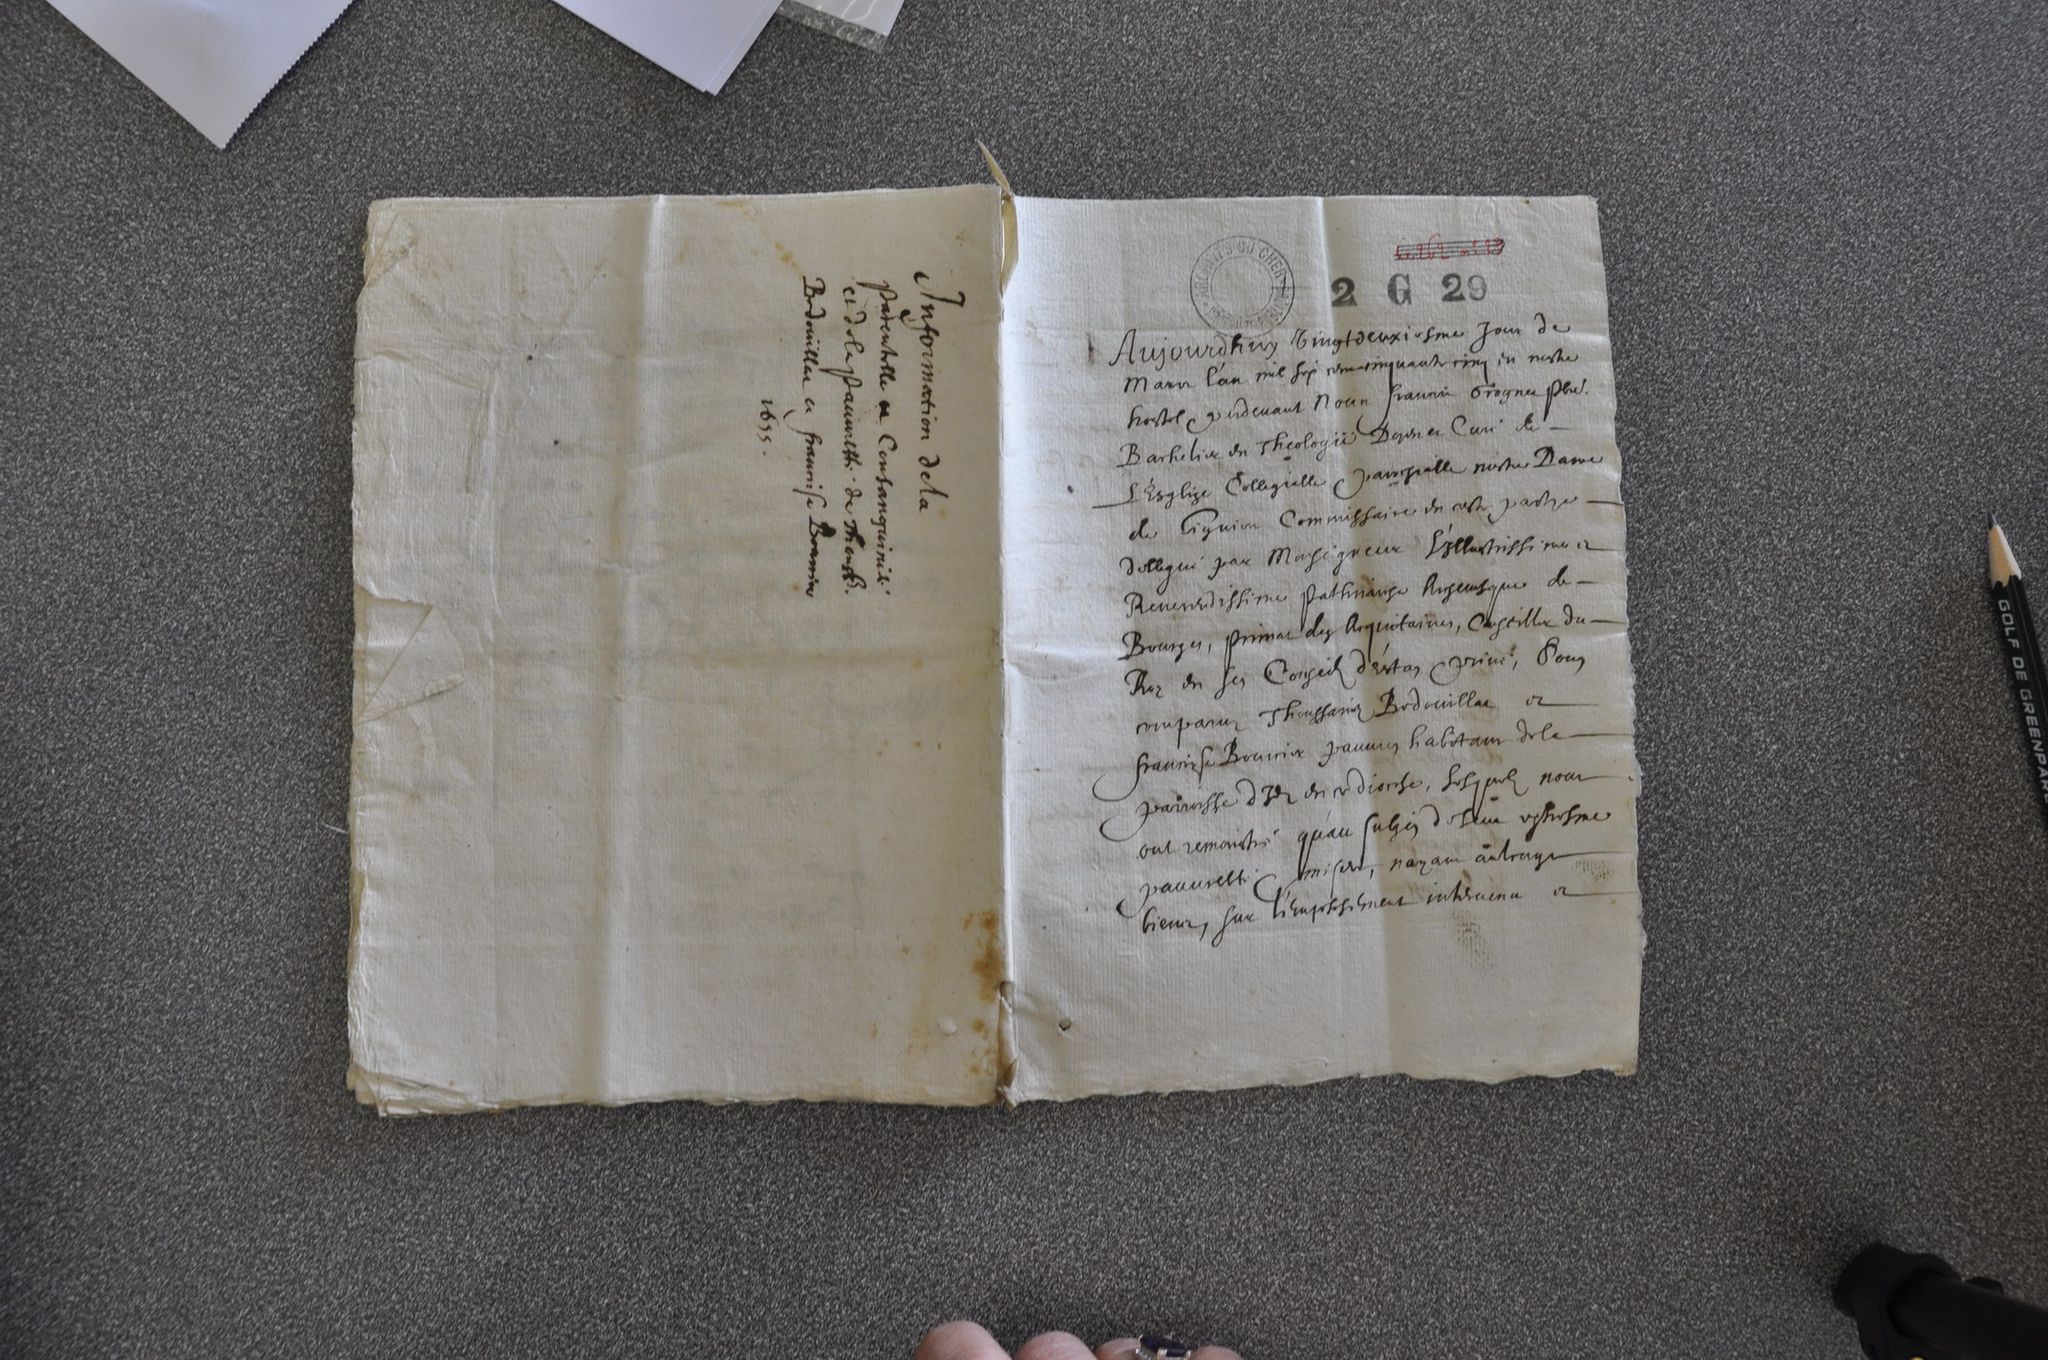 Information de la
parentelle et Consanguinité
et de la pauvretté de Thouss.
Bodouiller et francoise Bournier
1655.
ARCHIVES DU CHER
2 G 29
Aujourdhuy Vingtdeuxiesme Jour de
Mars l'an mil six cens cinquante cinq en nostre
hostel pardevant Nous francois Grogner pbr.
Bachelier en Theologie Doyen et Curé de
L'Esglise Collegialle parroissialle nostre Dame
de Ligniere Commissaire en ceste partye
dellegué par Monseigneur L'Illustrissime et
Reverendissime Patriarche Archevesque de
Bourges, primat des Acquitaines, Conseiller du
Roy en ses Conseils d'estat et privé, Sont
comparus Thoussainct Bodouiller et
francoise Bournier pauvres habitans de la
parroisse d'Ids en ce diocese, lesquels nous
ont remonstré qu'au subject de leur extresme
pauvretté et misere, nayant aulcuns
biens, sur l'empeschement intervenu et
GOLF DE GREENPAR